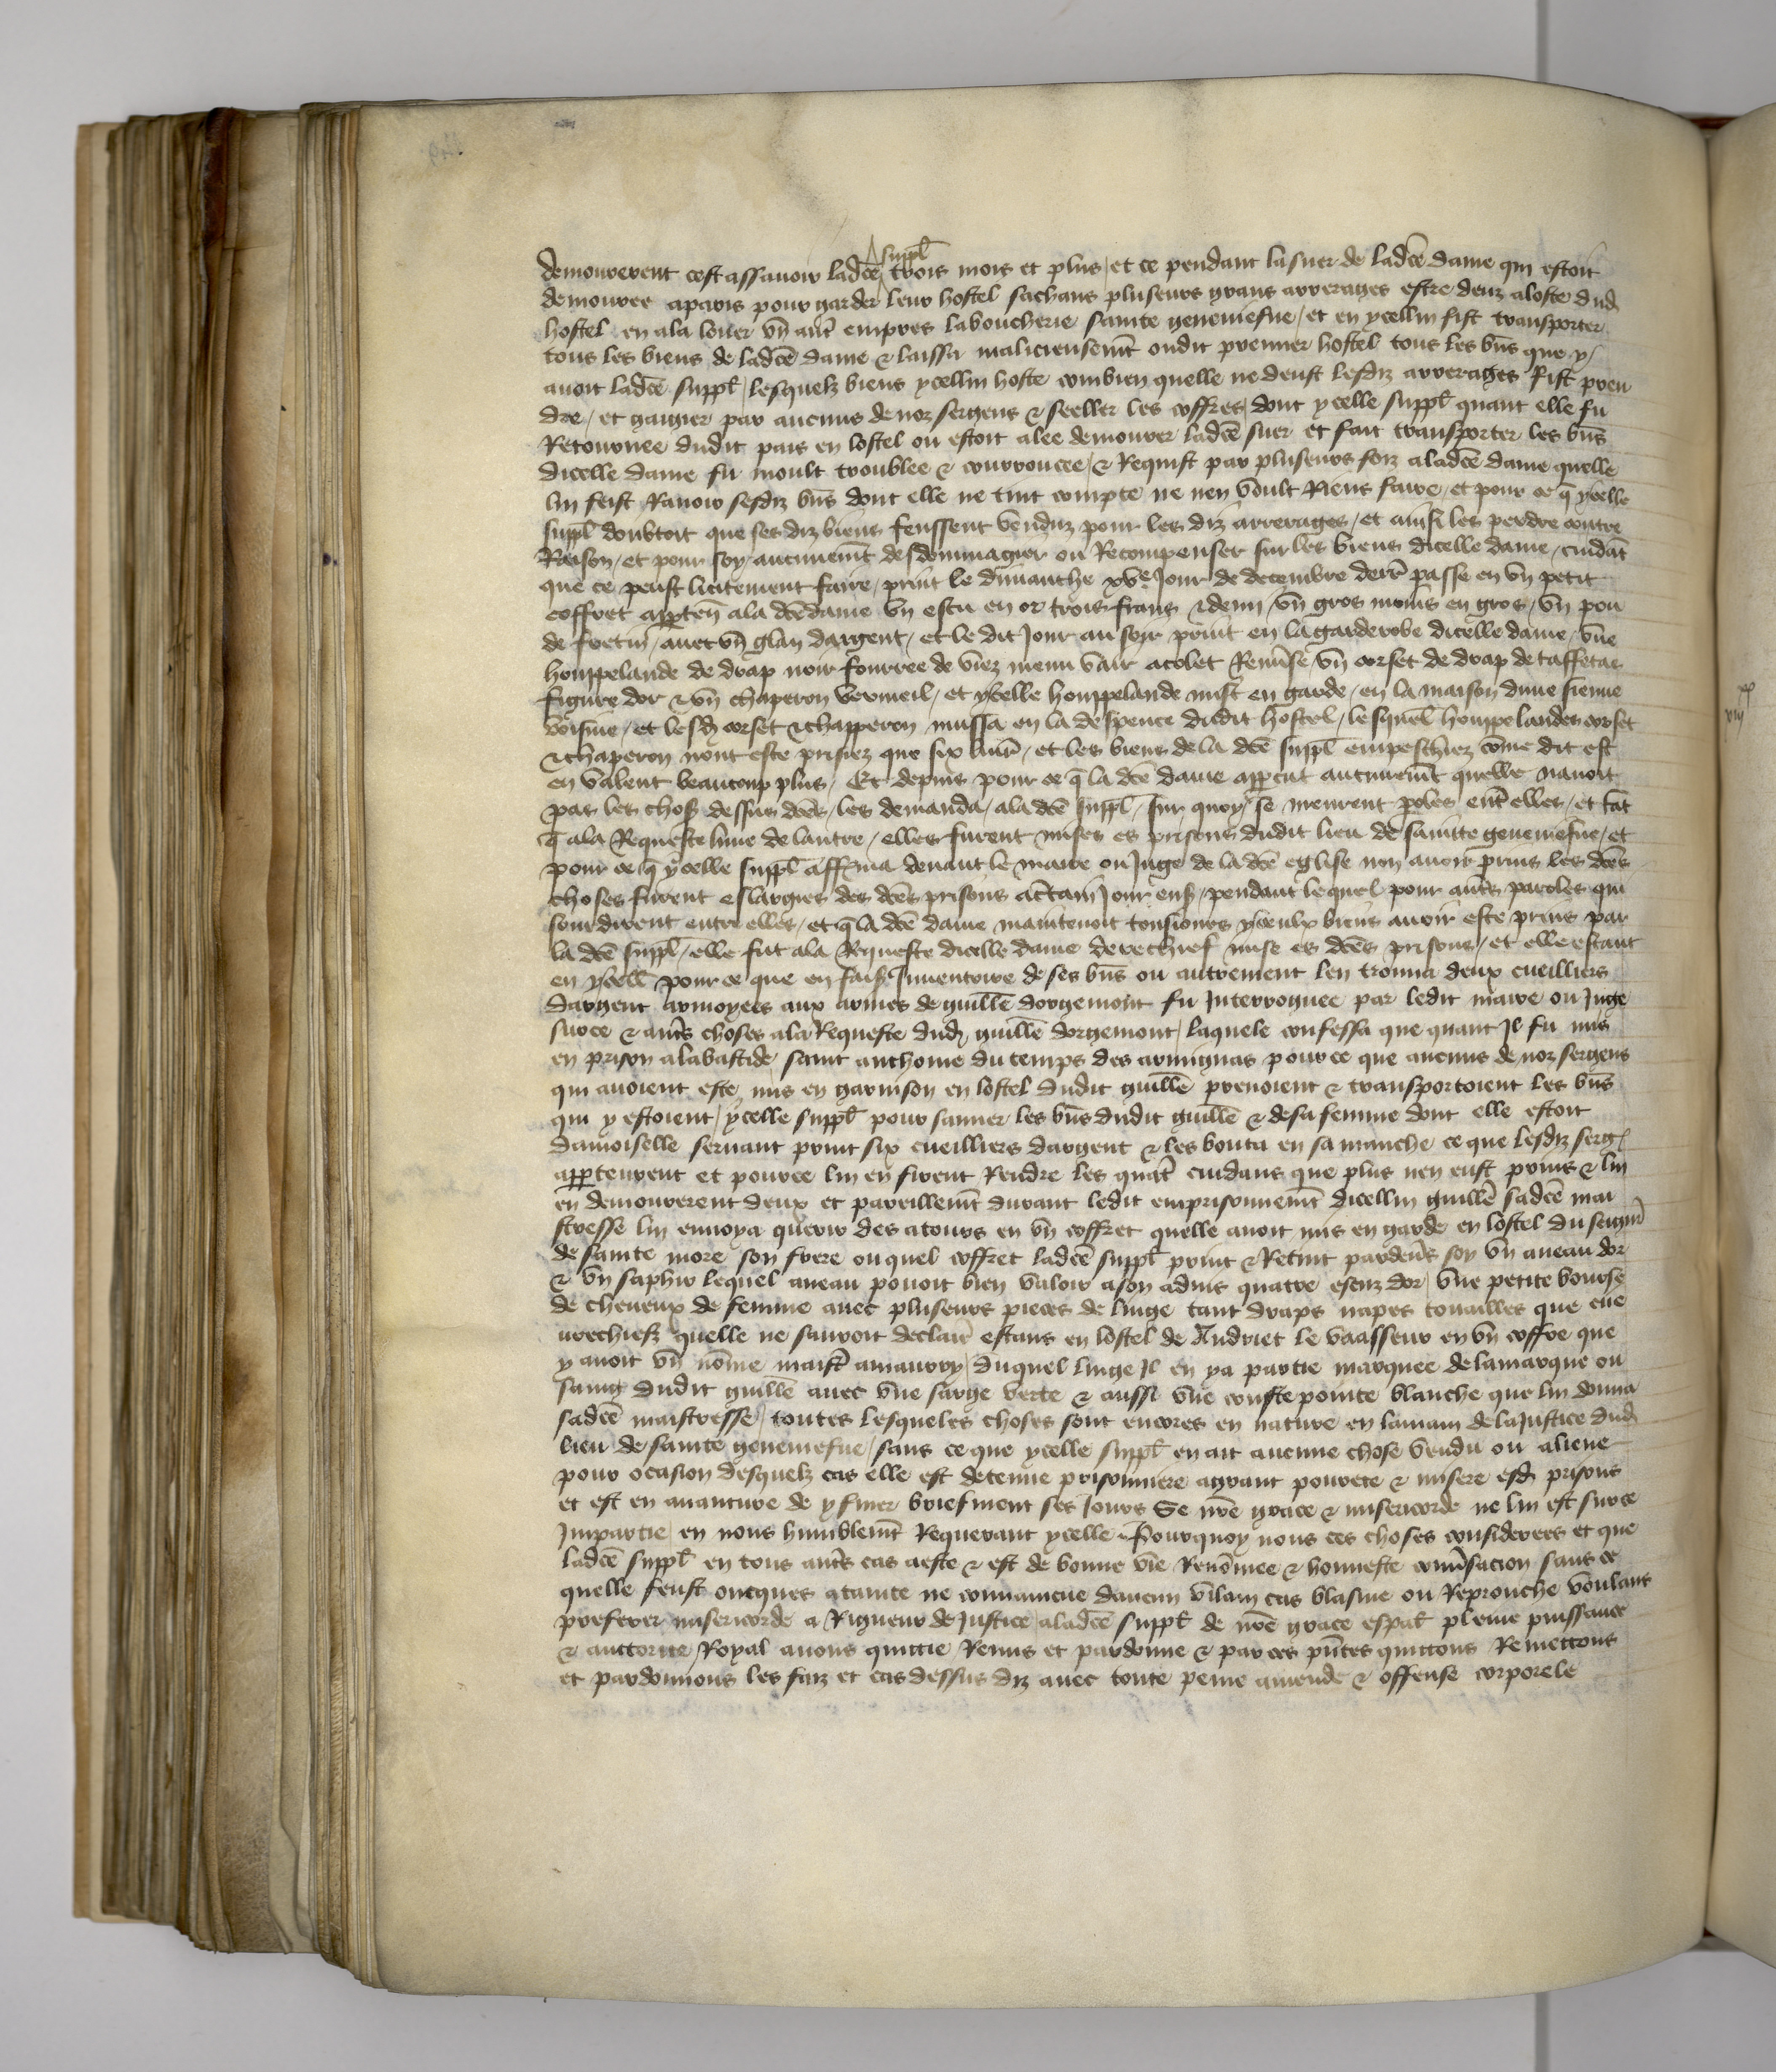 suppl̃
demourerent cest assavoir ladcẽ trois mois et plus / et ce pendant la suer de ladcẽ dame qui estoit
demouree aparis pour garder leur hostel sachans pluseurs grans arrerages estre deuz a loste dud
hostel en ala louer vñ autr̃ empres la boucherie sainte geneviefue / et en ycellui fist transporter
tous les biens de ladcẽ dame & laissa malicieusemt̃ oudit premier hostel tous les bñs que y
avoit ladcẽ suppl̃ / lesquelz biens ycellui hoste combien quelle ne deust lesdiz arrerages fist pren
dre / et gaigier par aucuns de noz sergens & seeller les coffres / dont ycelle suppl̃ quant elle fu
Retournee dudit pais en lostel ou estoit alee demourer ladcẽ suer et fait transporter les bñs
dicelle dame fu moult troublee & courroucee / & Requist par pluseurs foiz a ladcẽ dame quelle
lui feist Ravoir sesdiz bñs dont elle ne tint compte ne nen voult Riens faire / et pour ce q̃ ycelle
suppl̃ doubtoit que ses diz biens feussent venduz pour les diz arrerages / et ainsi les perdre contre
Raison / et pour soy aucunemt̃ desdommagier ou Recompenser sur les biens dicelle dame / cuidãt
que ce peust licitement faire / print le dimanche xvᵉ Jour de decembre derr̃ passe en vñ petit
coffret apparteñ a la dcẽ dame vñ escu en or trois frans & demi / vñ gros moins en gros / vñ pou
de fretiñ / avec vñ glan dargent / et le dit Jour au soir print en la garderobe dicelle dame / vñe
houppelande de drap noir fourree de viez menu vair a colet Renv̾se / vñ corset de drap de taffetas
figure dor & vñ chaperon vermeil / et ycelle houppelande mist en garde / en la maison dune sienne
voisine / et lesd corset & chapperon mussa en la despence dudit hostel / lesquel̃ houpelandes corset
& chaperon nont este prisiez que six livr̃ / et les biens de la dcẽ suppl̃ empeschiez cõme dit est
en valent beaucoup plus / Et depuis pour ce q̃ la dcẽ dame apperceut aucunemt̃ quelle navoit
pas les chos dessus dcẽs / les demanda / a la dcẽ suppl̃ / sur quoy se meurent p̃oles entr̃ elles / et tãt
q̃ a la Requeste lune de lautre / elles furent mises es prisons dudit lieu de sainte geneviefue / et
pour ce q̃ ycelle suppl̃ afferma devant le maire ou Juge de la dcẽ eglise non avoir prins les dcẽs
choses furent eslargies des dcẽs prisons a c̃tain Jour ens / pendant lequel pour autr̃s paroles qui
sourdirent entre elles / et q̃ la dcẽ dame maintenoit tousiours yceulx biens avoir este prins par
la dcẽ suppl̃ / elle fut a la Requeste dicelle dame derechief mise es dcẽs prisons / et elle estant
en ycell̃ pour ce que en fais Inventoire de ses bñs ou autrement len trouva deux cueilliers
dargent armoyees aux armes de guillẽ dorgemont fu Interroguee par ledit maire ou Juge
sur ce & autr̃s choses a la Requeste dud guillẽ dorgemont / laquele confessa que quant Il fu mis
en prison a la bastide saint anthoine du temps des armignas pour ce que aucuns de noz sergens
qui avoient este mis en garnison en lostel dudit guillẽ prenoient & transportoient les bñs
qui y estoient / ycelle suppl̃ pour sauver les bñs dudit guillẽ & de sa femme dont elle estoit
damoiselle servant print six cueilliers dargent & les bouta en sa manche ce que lesdiz serg̃
apperceurent et pour ce lui en firent Rendre les quatr̃ cuidans que plus nen eust prins & lui
en demourerent deux et pareillemt̃ durant ledit emprisonnemt̃ dicellui guillẽ sadcẽ mai
stresse lui envoya querir des atours en vñ coffret quelle avoit mis en garde en lostel du seigñr
de sainte more son frere ouquel coffret ladcẽ suppl̃ print & Retint pardev̾s soy vñ aneau dor
& vñ saphir lequel aneau povoit bien valoir a son advis quatre escuz dor / vñe petite bourse
de cheveux de femme avec pluseurs pieces de linge tant draps napes touailles que cue
vrechiefz quelle ne sauroit declair̃ estans en lostel de Andriet le vaasseur en vñ coffre que
y avoit vñ nõme maistr̃ amaurry / duquel linge Il en ya partie marquee de la marque ou
saing dudit guillẽ avec vñe sarge verte & aussi vñe coustepointe blanche que lui donna
sadcẽ maistresse / toutes lesqueles choses sont encores en nature en la main de la Justice dud
lieu de sainte geneviefue / sans ce que ycelle suppl̃ en ait aucune chose vendu ou aliene
pour ocasion desquelz cas elle est detenue prisonniere a grant povrete & misere esd prisons
et est en avanture de y finer briefment ses Jours Se nrẽ grace & misericorde ne lui est sur ce
Impartie / en nous humblemt̃ Requerant ycelle Pourquoy nous ces choses considerees et que
ladcẽ suppl̃ en tous autr̃s cas a este & est de bonne vie Renõmee & honneste conv̾sacion sans ce
quelle feust oncques attainte ne convaincue daucun vilain cas blasme ou Reprouche voulans
preferer misericorde a Rigueur de Justice / a ladcẽ suppl̃ de nrẽ grace espal̃ pleine puissance
& auctorite Royal avons quictie Remis et pardonne & par ces pñtes quictons Remettons
et pardonnons les faiz et cas dessus diz avec toute peine amende & offense corporele